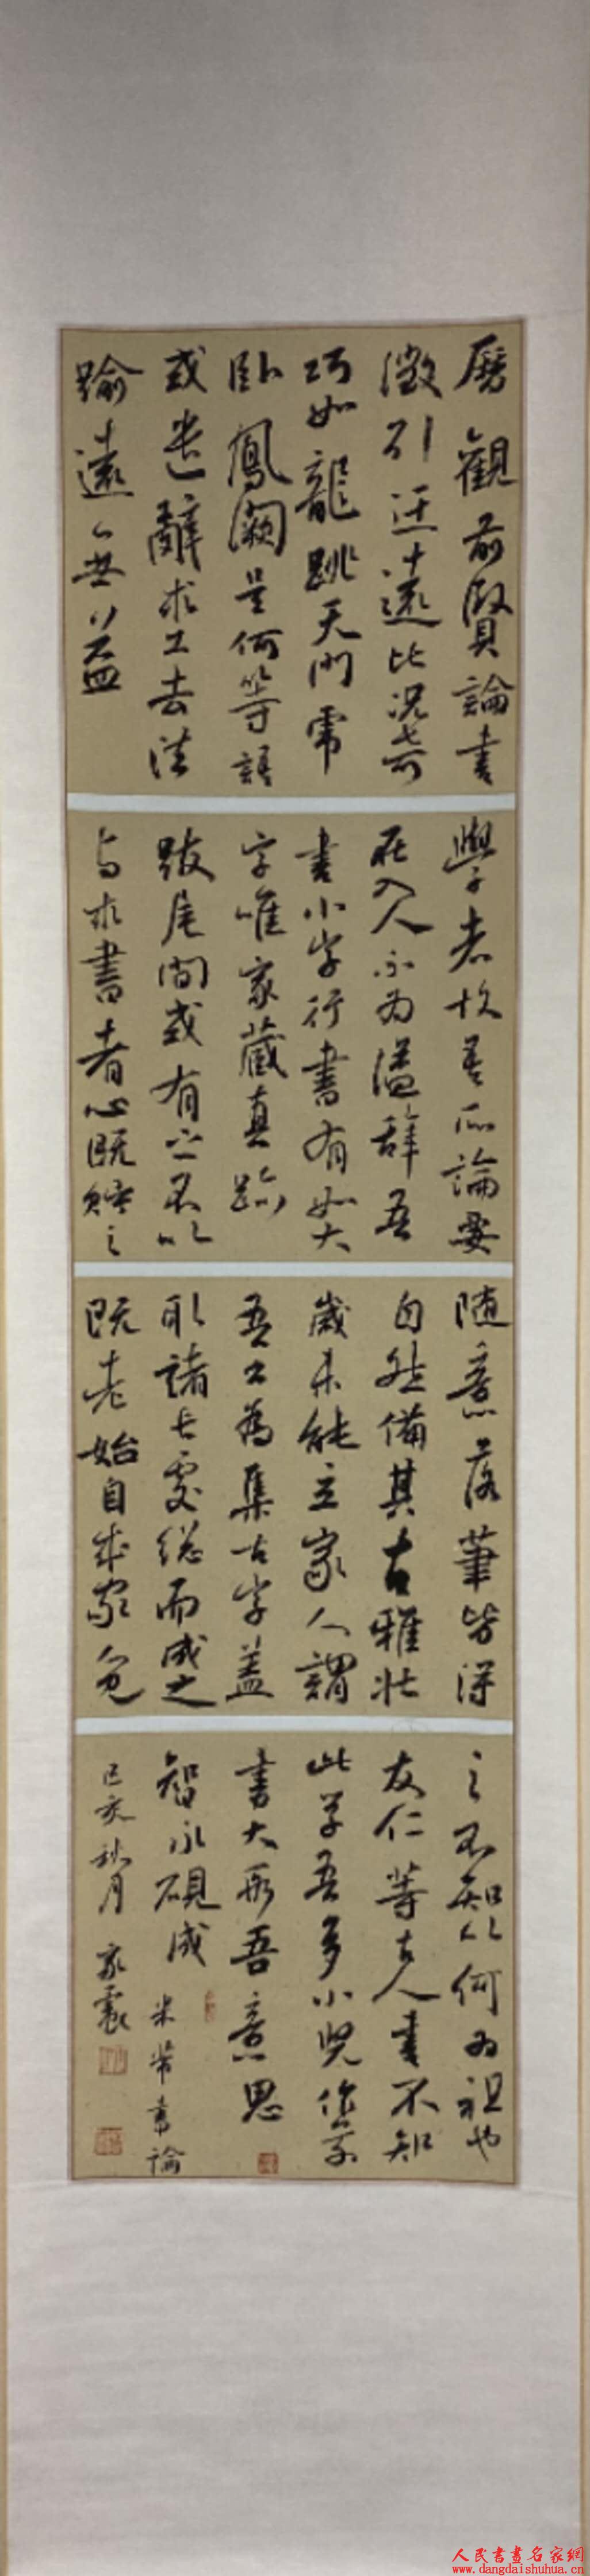 歷觀前賢論書
徵引迂遠比況奇
巧如龍跳天門虎
臥鳳闕是何等語
或遣辭求工去法
踰遠無益
學者故吾所論要
在入人不為溢辭吾
書小字行書有如大
字唯家藏真跡
跋尾間或有之不以
与求書者心既貯之
随意落筆皆得
自然備其古雅壯
歲未能立家人謂
吾書為集古字蓋
取諸長處總而成之
既老始自成家人見
之不知以何為祖也
友仁等古人書不知
此學吾多小兒作草
書大段吾意思
智永硯成
米芾書論
己亥秋月
人民書畫名家網
www.dangdaishuhua.cn